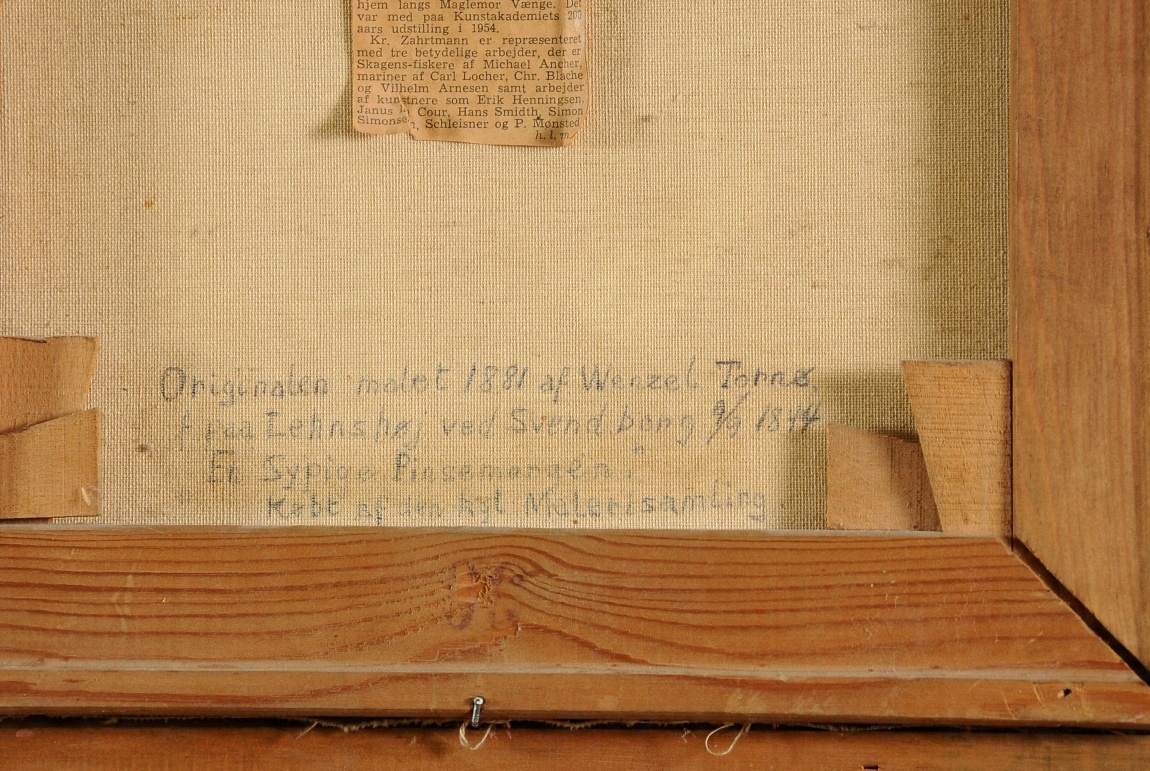 hjem langs Maglemor Vænge. Det
var med paa Kunstakademiets 200
aars udstilling i 1954.
Kr. Zahrtmann er repræsenteret
med tre betydelige arbejder, der er
Skagens-fiskere af Michael Ancher,
mariner af Carl Locher, Chr. Blache
og Vilhelm Arnesen samt arbejder
af kunstnere som Erik Henningsen,
Janus la Cour, Hans Smidth, Simon
Simonsen, Schleisner og P. Mønsted
h. l. m.
Originalen malet 1881 af Wenzel Tornø.
f paa Lehnshøj ved Svendborg 9/9 1844
En Sypige Pinsemorgen."
Købt af den kgl Malerisamling